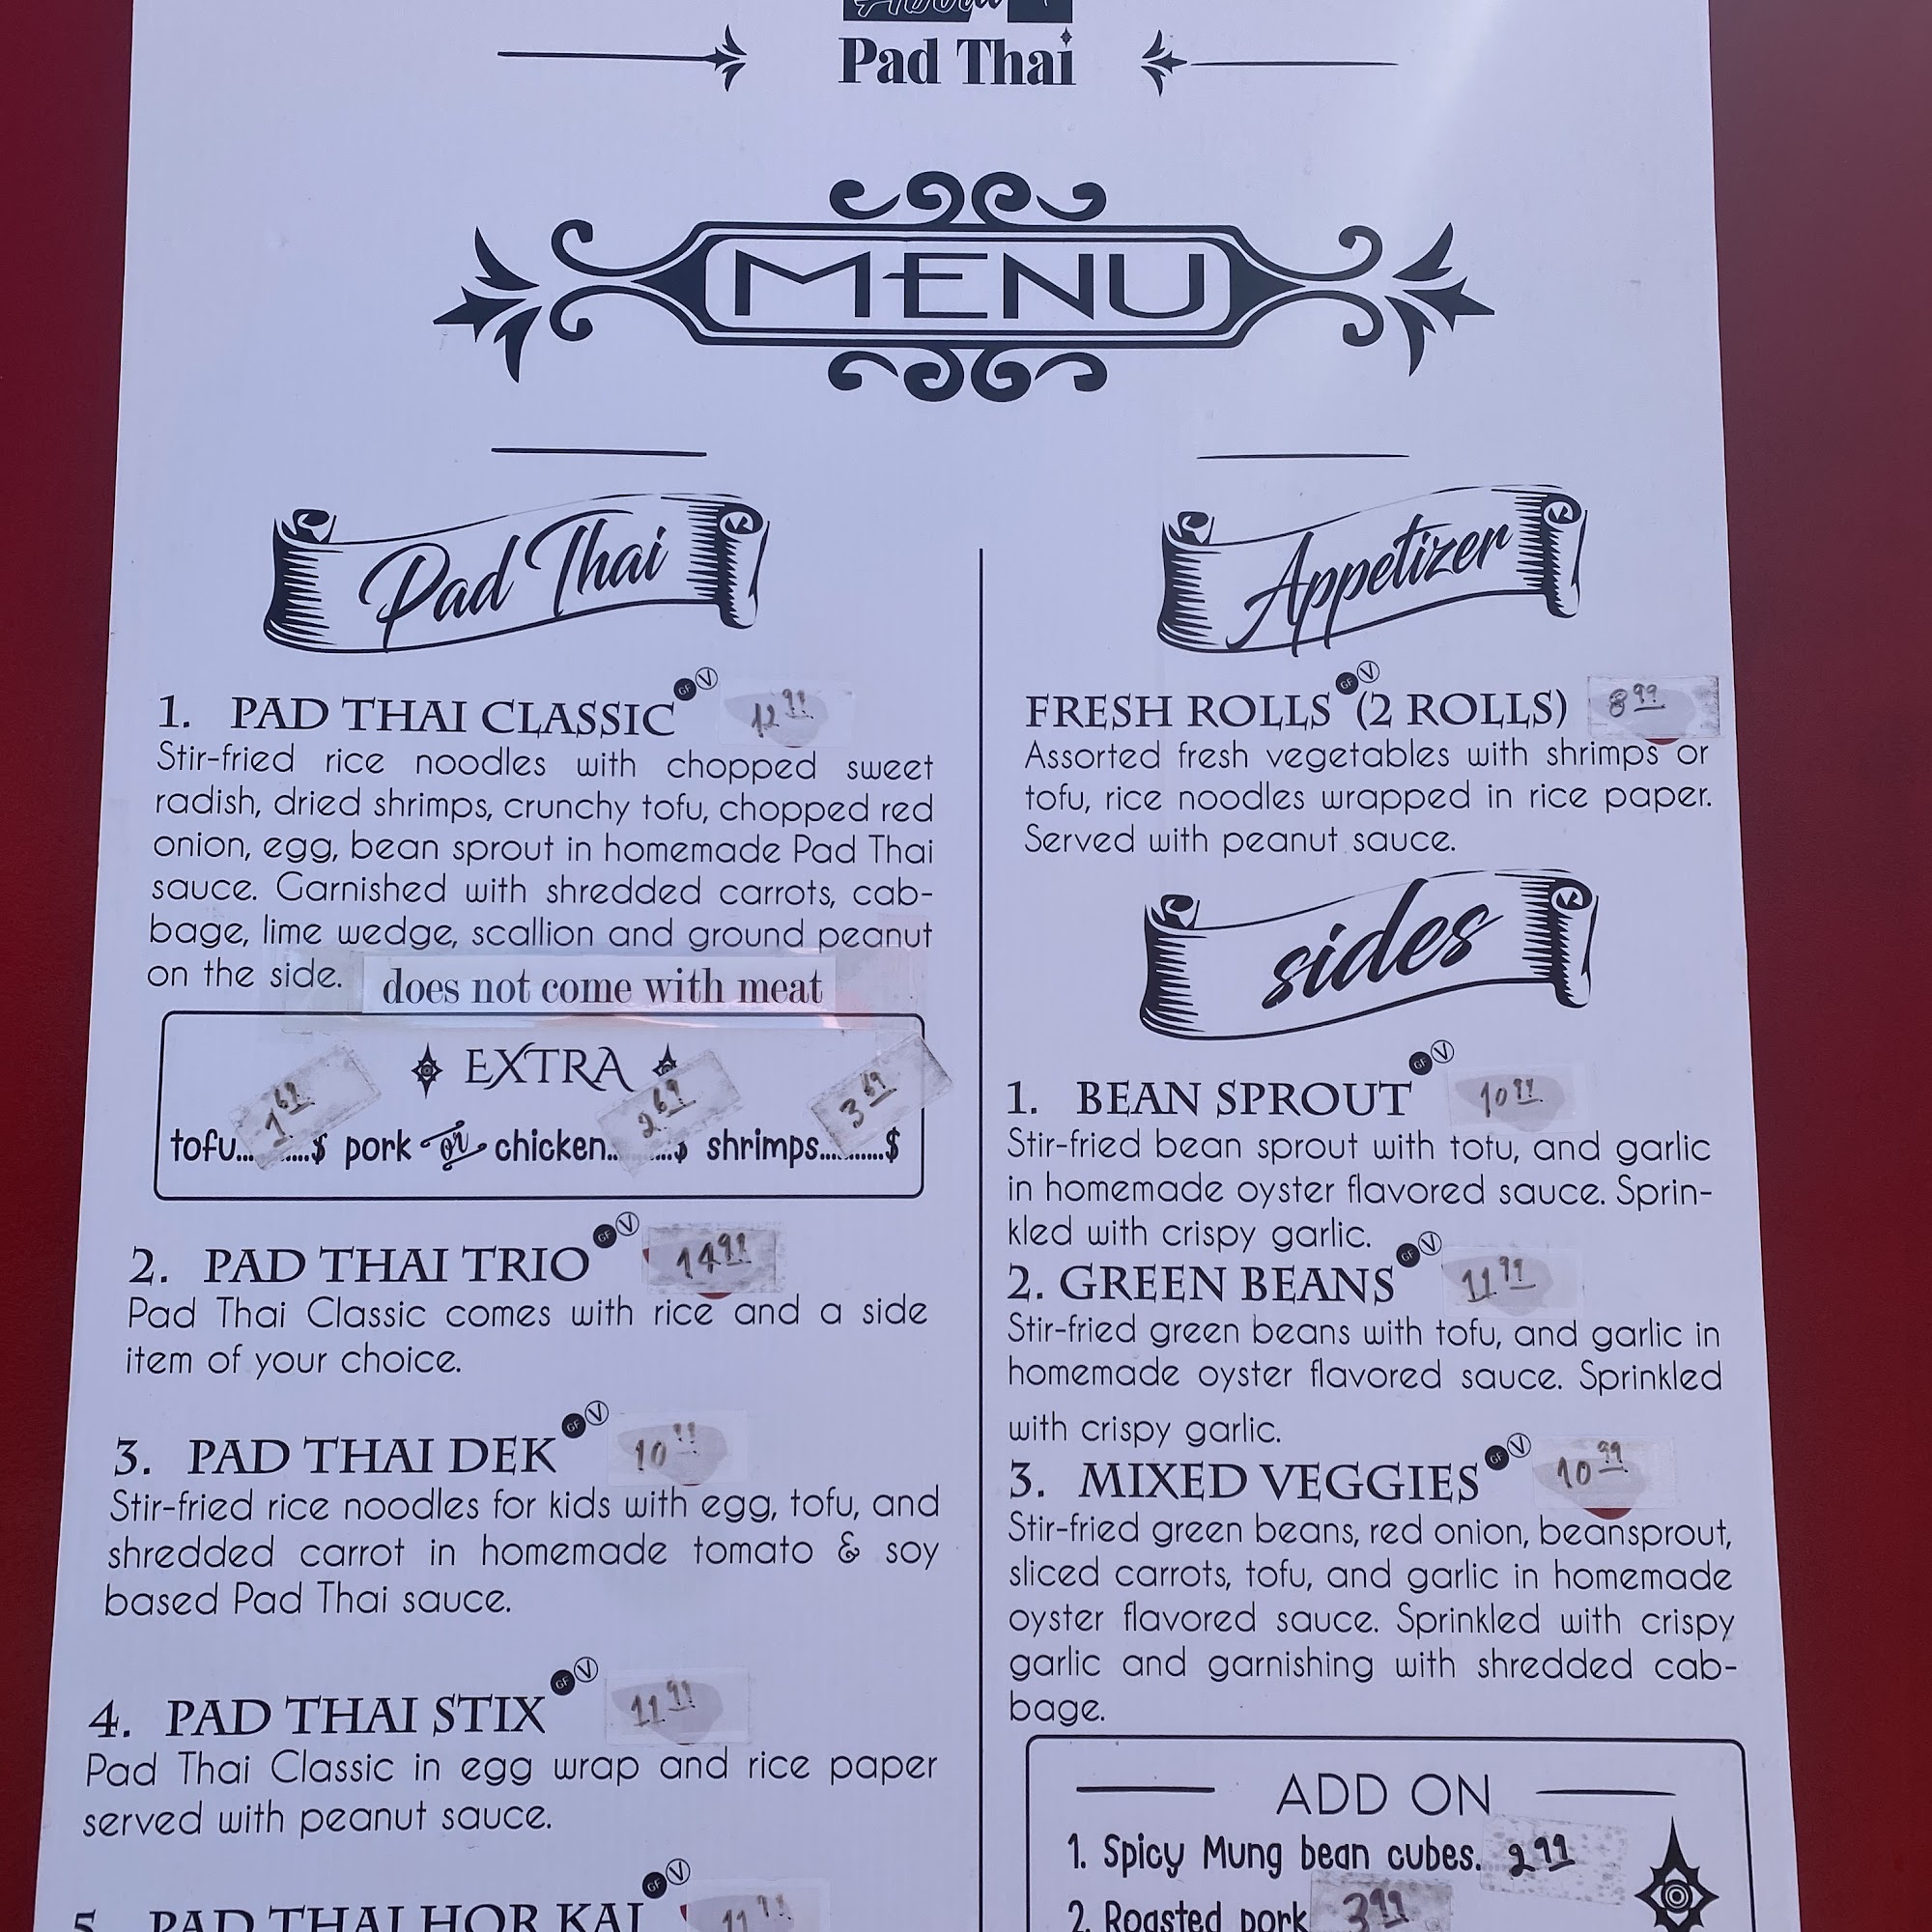 Pad Thai
MENU
Pad Thai
1. PAD THAI CLASSIC GF V 12 99
Stir-fried rice noodles with chopped sweet
radish, dried shrimps, crunchy tofu, chopped red
onion, egg, bean sprout in homemade Pad Thai
sauce. Garnished with shredded carrots, cab-
bage, lime wedge, scallion and ground peanut
on the side. does not come with meat
EXTRA
1 69 2 69 3 69
tofu.........$ pork or chicken.........$ shrimps..........$
2. PAD THAI TRIO GF V 14 99
Pad Thai Classic comes with rice and a side
item of your choice.
3. PAD THAI DEK GF V 10 99
Stir-fried rice noodles for kids with egg, tofu, and
shredded carrot in homemade tomato & soy
based Pad Thai sauce.
4. PAD THAI STIX GF V 11 99
Pad Thai Classic in egg wrap and rice paper
served with peanut sauce.
5. PAD THAI HOR KAI GF V 11 99
Appetizer
FRESH ROLLS GF V (2 ROLLS) 8 99
Assorted fresh vegetables with shrimps or
tofu, rice noodles wrapped in rice paper.
Served with peanut sauce.
sides
1. BEAN SPROUT GF V 10 99
Stir-fried bean sprout with tofu, and garlic
in homemade oyster flavored sauce. Sprin-
kled with crispy garlic.
2. GREEN BEANS GF V 11 99
Stir-fried green beans with tofu, and garlic in
homemade oyster flavored sauce. Sprinkled
with crispy garlic.
3. MIXED VEGGIES GF V 10 99
Stir-fried green beans, red onion, beansprout,
sliced carrots, tofu, and garlic in homemade
oyster flavored sauce. Sprinkled with crispy
garlic and garnishing with shredded cab-
bage.
ADD ON
1. Spicy Mung bean cubes. 2 99
2. Roasted pork 3 99